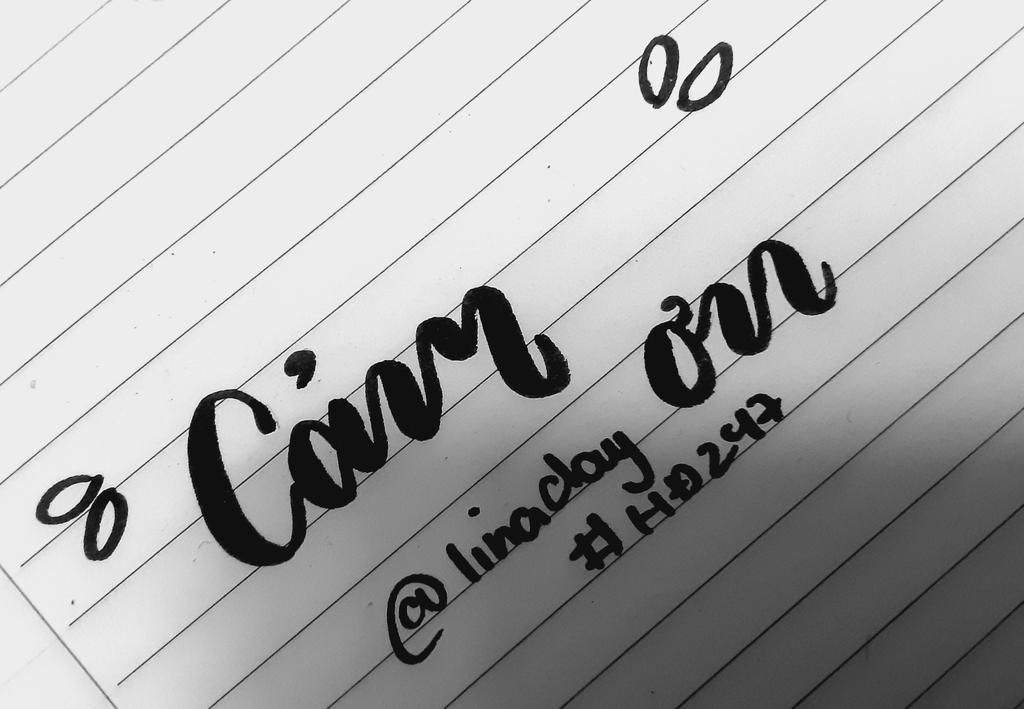 Cảm ơn
@linaday
#HĐ247